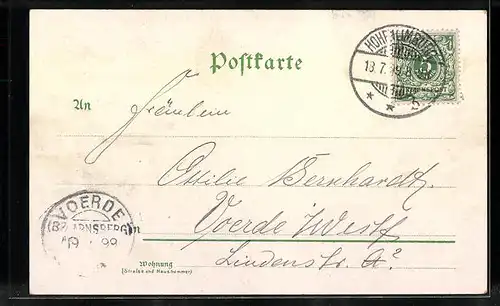 Postkarte
HOHENLIMBURG
13.7.99.8
An Fräulein
Ottilie Bernhardt
VOERDE
(BZ. ARNSBERG)
99
in Voerde i/Westf
Lindenstr.
Wohnung
(Straße und Hausnummer)